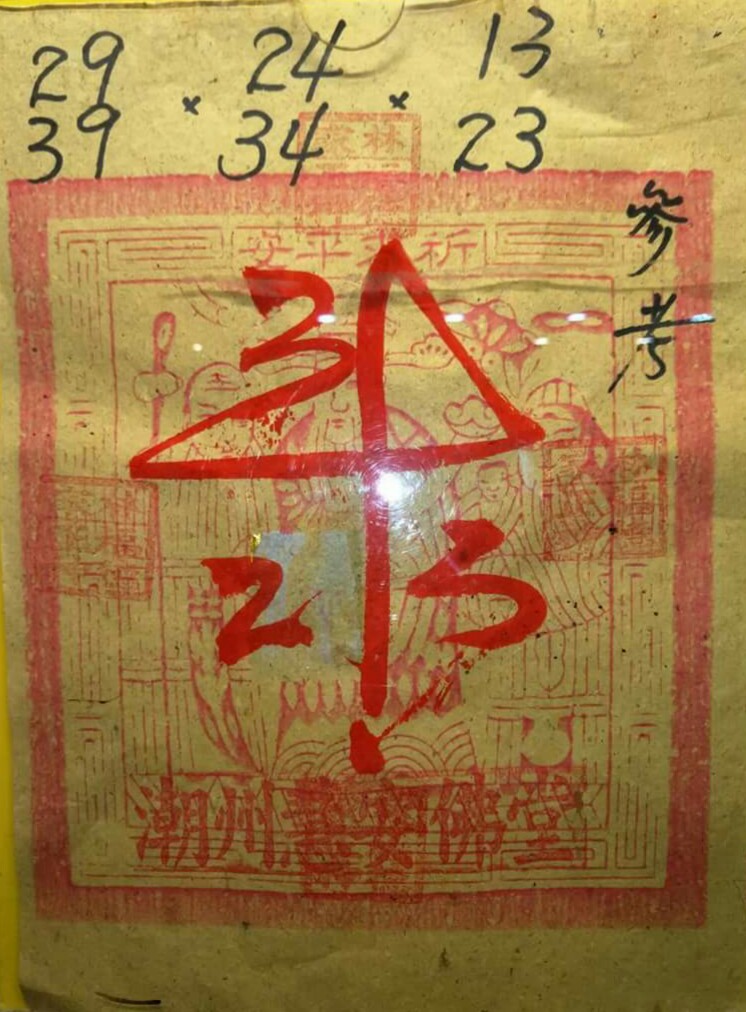 29 24 13
× ×
39 34 23
參考
祈求平安
3
2 3
潮州 佛堂